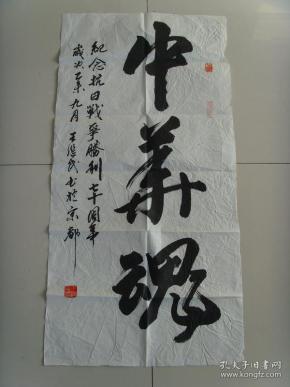 中華魂
紀念抗日戰爭勝利七十周年
歲次乙未九月 王 民书於京都
孔夫子旧书网